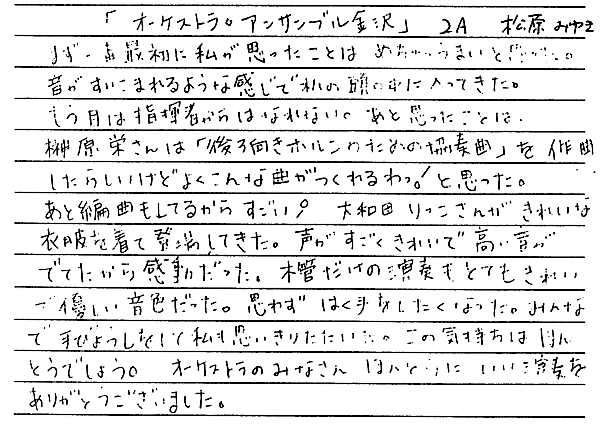 「オーケストラ。アンサンブル金沢」 2A 松原みゆき
まず一番最初に私が思ったことは めちゃうまいと思った。
音がすいこまれるような感じで私の頭の中に入ってきた。
もう月は指揮者からはなれない。あと思ったことは、
榊原栄さんは「後ろ向きホルンのための協奏曲」を作曲
したらしいけどよくこんな曲がつくれるわっ!と思った。
あと編曲もしてるからすごい! 大和田りつこさんがきれいな
衣服を着て登場してきた。声がすごくきれいで高い音が
でてたから感動だった。木管だけの演奏もとてもきれい
で優しい音色だった。思わずはく手をしたくなった。みんな
で手びょうしをして私も思いきりたたいた。この気持ちはほん
とうでしょう。 オーケストラのみなさん ほんとうにいい演奏を
ありがとうございました。